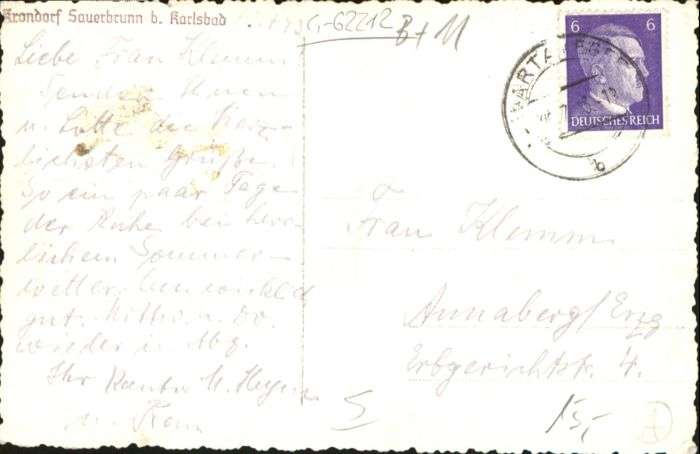 Krondorf Sauerbrunn b. Karlsbad
G-62212
B+M
6 6
DEUTSCHES REICH
WARTA
b
Liebe Frau Klemm
Senden Ihnen
u. Lotte die herz-
lichsten Grüße.
So ein paar Tage
der Ruhe bei herr-
lichem Sommer-
wetter
gut. Mittw. u. Do.
wieder in Abg.
Ihr
u. Frau
Frau Klemm
Annaberg/Erzg
Erbgerichtstr. 4.